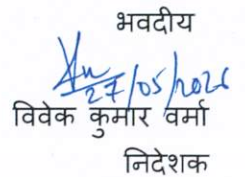 भवदीय
27/05/2026
विवेक कुमार वर्मा
निदेशक